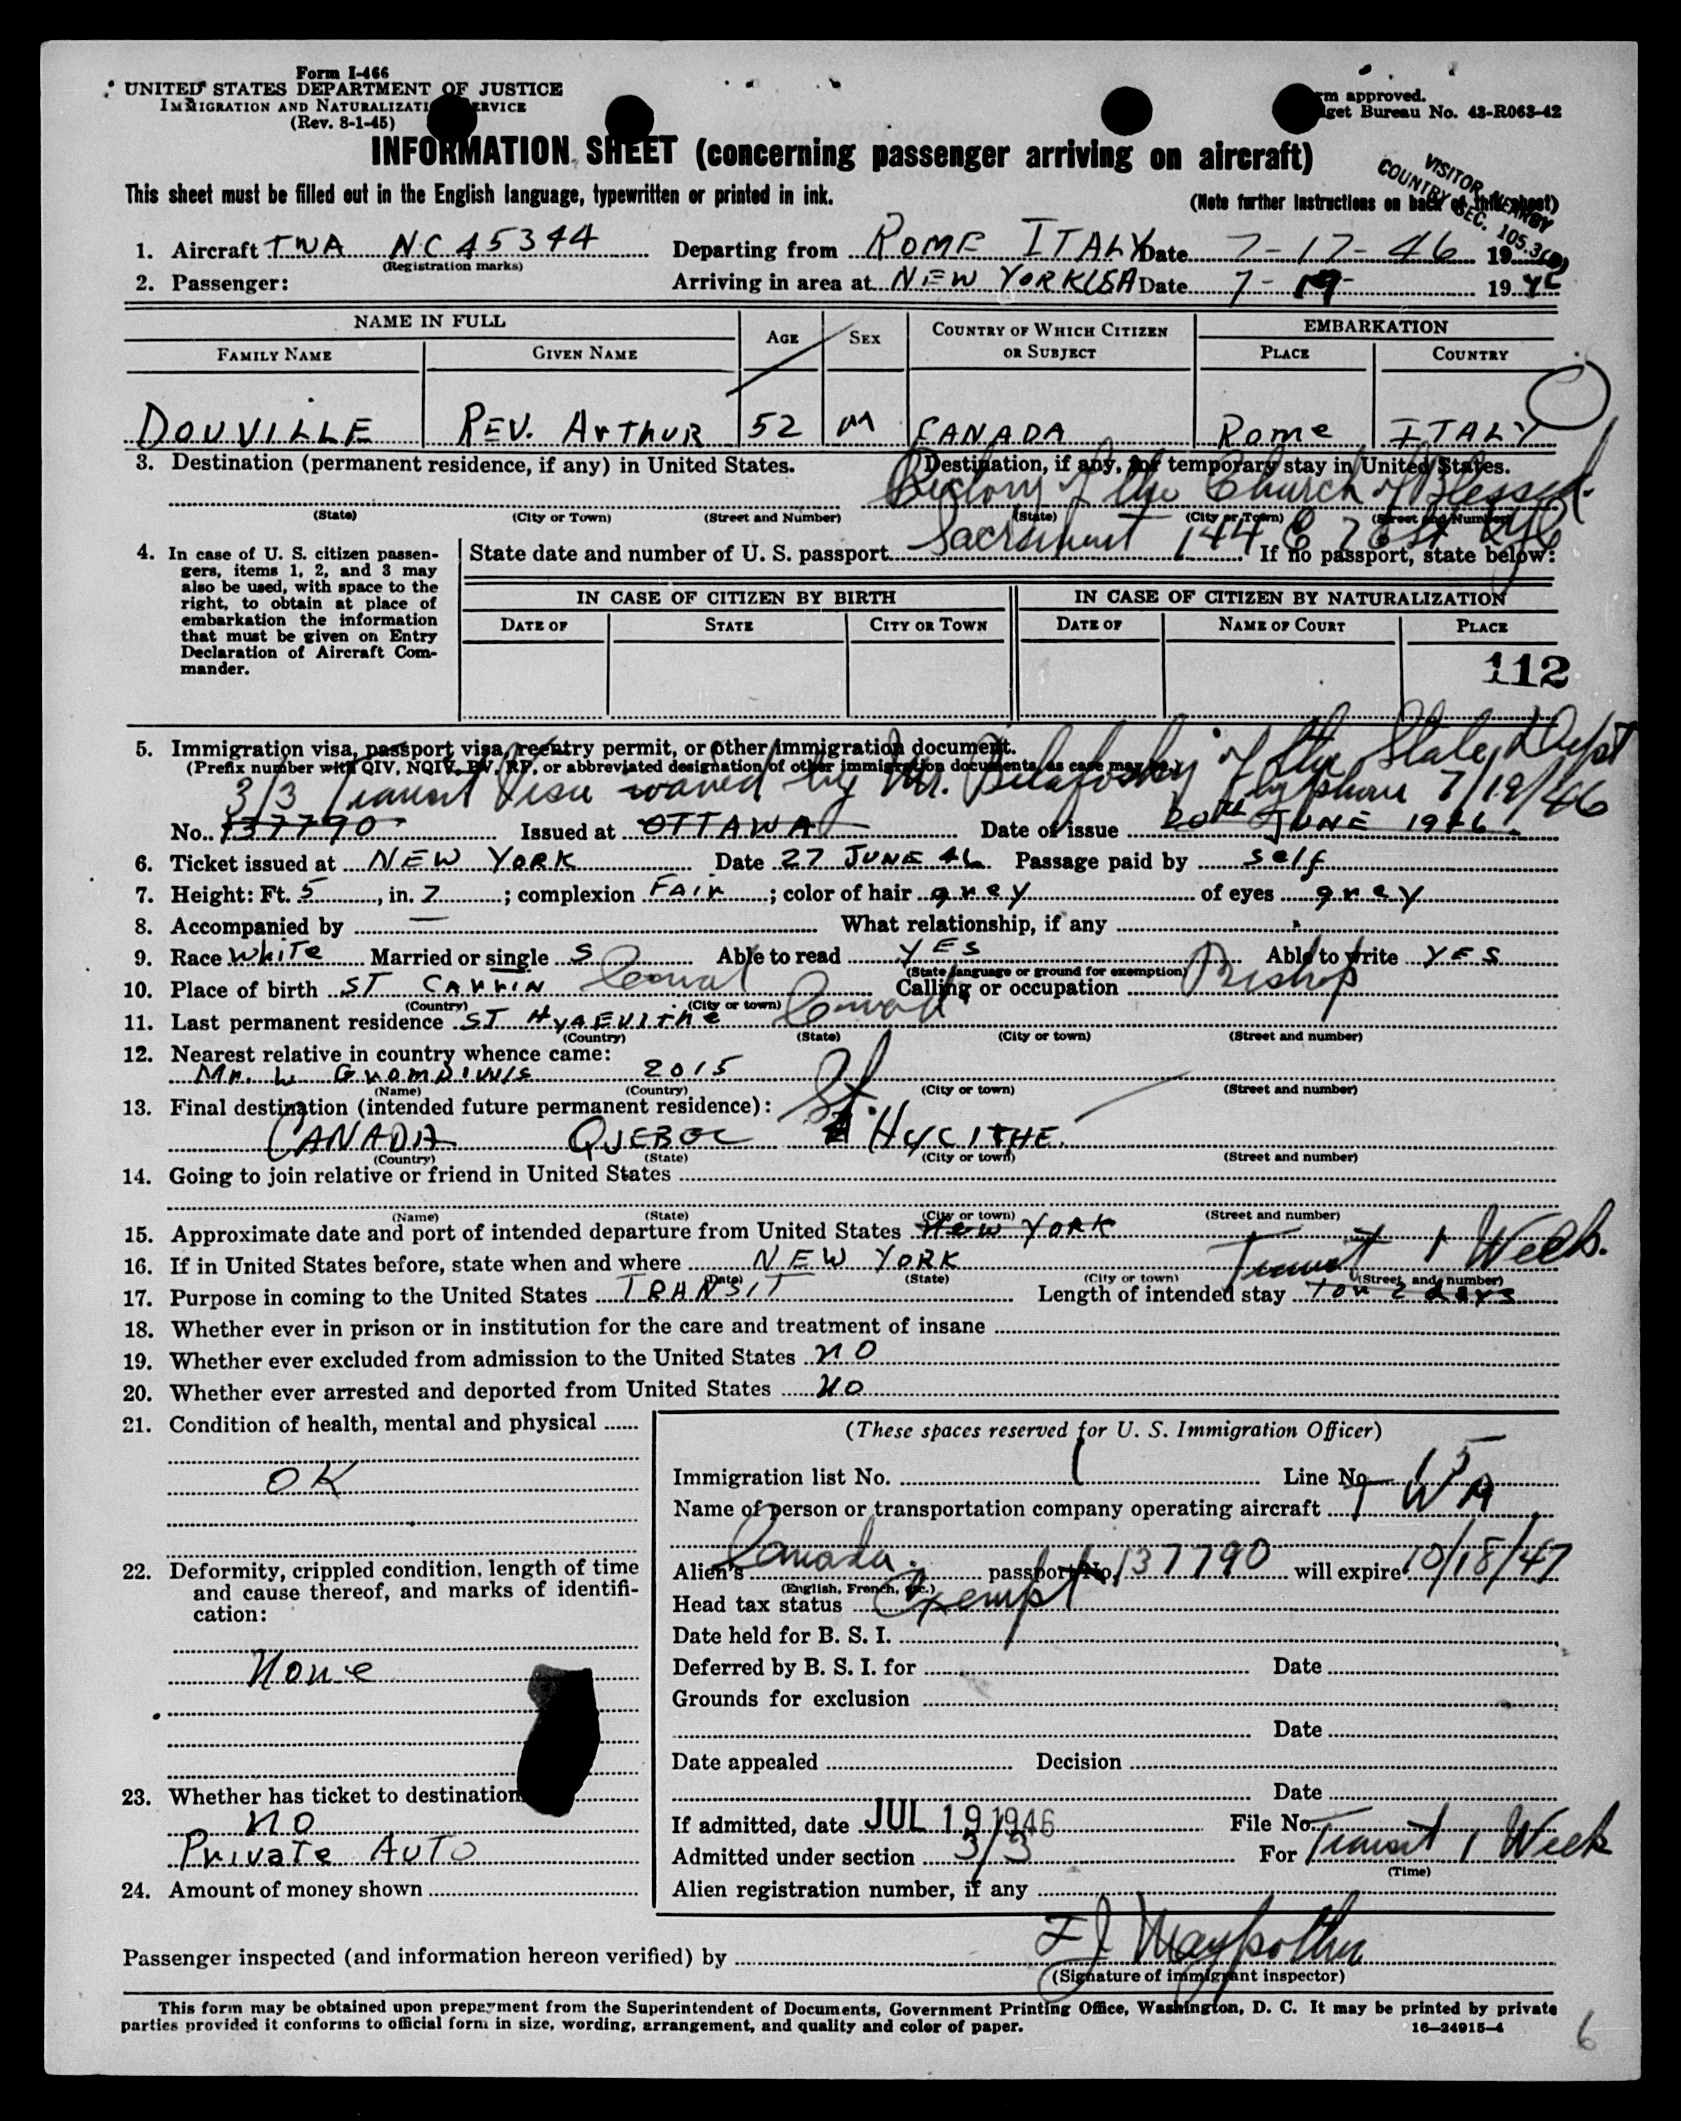 Form I-466
UNITED STATES DEPARTMENT OF JUSTICE
IMMIGRATION AND NATURALIZATION SERVICE
(Rev. 8-1-45)
Form approved.
Budget Bureau No. 43-R063-42
INFORMATION SHEET (concerning passenger arriving on aircraft)
VISITOR NEARBY
COUNTRY SEC. 105.3(B)
This sheet must be filled out in the English language, typewritten or printed in ink. (Note further instructions on back of this sheet)
1. Aircraft TWA NC 45344 Departing from ROME ITALY Date 7-17-46 19
(Registration marks)
2. Passenger: Arriving in area at NEW YORK USA Date 7-19- 19 46
NAME IN FULL AGE SEX COUNTRY OF WHICH CITIZEN OR SUBJECT EMBARKATION
FAMILY NAME GIVEN NAME PLACE COUNTRY
DOUVILLE REV. ARTHUR 52 M CANADA Rome ITALY
3. Destination (permanent residence, if any) in United States. Destination, if any, for temporary stay in United States.
Rectory of the Church of Blessed
(State) (City or Town) (Street and Number) (State) (City or Town) (Street and Number)
Sacrament 144 E 76 St NYC
4. In case of U. S. citizen passengers, items 1, 2, and 3 may also be used, with space to the right, to obtain at place of embarkation the information that must be given on Entry Declaration of Aircraft Commander.
State date and number of U. S. passport If no passport, state below:
IN CASE OF CITIZEN BY BIRTH IN CASE OF CITIZEN BY NATURALIZATION
DATE OF STATE CITY OR TOWN DATE OF NAME OF COURT PLACE
112
5. Immigration visa, passport visa, reentry permit, or other immigration document.
(Prefix number with QIV, NQIV, PV, RP, or abbreviated designation of other immigration documents, as case may be.)
3/3 Transit Visa waived by Mr. of the State Dept
by phone 7/19/46
No. 137790 Issued at OTTAWA Date of issue 20TH JUNE 1946.
6. Ticket issued at NEW YORK Date 27 JUNE 46 Passage paid by self
7. Height: Ft. 5, in. 7; complexion FAIR; color of hair grey of eyes grey
8. Accompanied by — What relationship, if any
9. Race White Married or single S Able to read YES Able to write YES
(State language or ground for exemption)
10. Place of birth ST Canada Calling or occupation Bishop
(Country) (City or town)
11. Last permanent residence ST Canada
(Country) (State) (City or town) (Street and number)
12. Nearest relative in country whence came:
Mr. L 2015
(Name) (Country) (City or town) (Street and number)
13. Final destination (intended future permanent residence):
CANADA QUEBEC St. HYCITHE.
(Country) (State) (City or town) (Street and number)
14. Going to join relative or friend in United States
(Name) (State) (City or town) (Street and number)
15. Approximate date and port of intended departure from United States New YORK
16. If in United States before, state when and where NEW YORK Transit 1 Week.
(Date) (State) (City or town) (Street and number)
17. Purpose in coming to the United States TRANSIT Length of intended stay 1 or 2 days
18. Whether ever in prison or in institution for the care and treatment of insane
19. Whether ever excluded from admission to the United States NO
20. Whether ever arrested and deported from United States NO
21. Condition of health, mental and physical
OK
22. Deformity, crippled condition, length of time and cause thereof, and marks of identification:
None
23. Whether has ticket to destination
NO
Private AUTO
24. Amount of money shown
(These spaces reserved for U. S. Immigration Officer)
Immigration list No. 1 Line No. 15
Name of person or transportation company operating aircraft TWA
Alien's Canada passport No. 137790 will expire 10/18/47
(English, French, etc.)
Head tax status Exempt
Date held for B. S. I.
Deferred by B. S. I. for Date
Grounds for exclusion
Date
Date appealed Decision
Date
If admitted, date JUL 19 1946 File No.
Admitted under section 3/3 For Transit 1 Week
(Time)
Alien registration number, if any
Passenger inspected (and information hereon verified) by
(Signature of immigrant inspector)
This form may be obtained upon prepayment from the Superintendent of Documents, Government Printing Office, Washington, D. C. It may be printed by private
parties provided it conforms to official form in size, wording, arrangement, and quality and color of paper. 16—24915-4
6